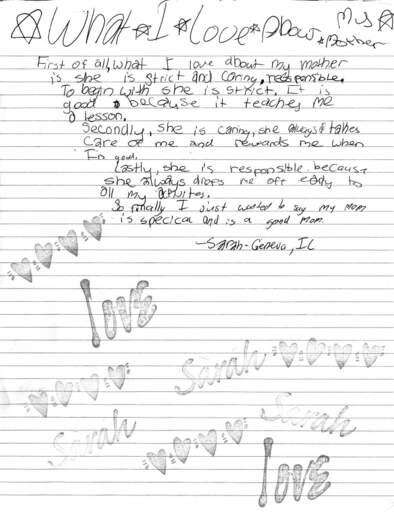 What I Love About My Mother
First of all, what I love about my mother
is she is strict and caring, responsible.
To begin with she is strict. It is
good because it teaches me
a lesson.
Secondly, she is caring, she always takes
care of me and rewards me when
I'm good.
Lastly, she is responsible because
she always drops me off early to
all my activites.
So finally I just wanted to say my mom
is specical and is a good mom.
-Sarah-Geneva, IL
love
Sarah
Sarah
Sarah
love